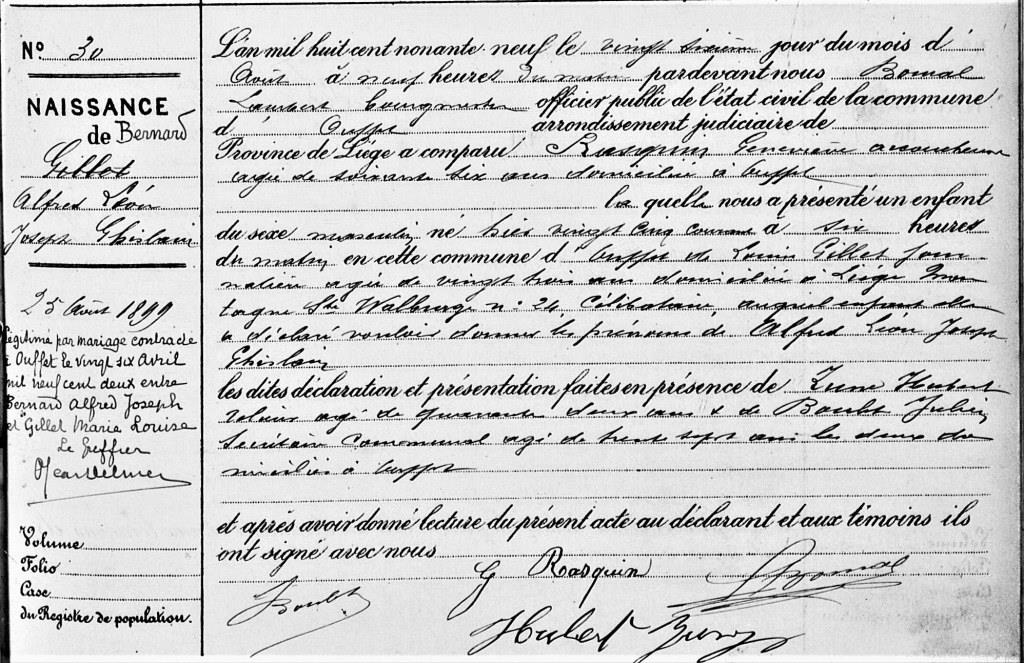 N° 30
NAISSANCE
de Bernard
Gillet
Alfred Léon
Joseph Ghislain
25 Août 1899
légitimé par mariage contracté
à Ouffet le vingt six Avril
mil neuf cent deux entre
Bernard Alfred Joseph
et Gillet Marie Louise
Le Greffier
Volume
Folio
Case
du Registre de population.
L'an mil huit cent nonante-neuf le vingt sixième jour du mois d'
Août à neuf heures du matin pardevant nous Bomal
Lambert bourgmestre officier public de l'état civil de la commune
d' Ouffet arrondissement judiciaire de
Province de Liége a comparu Rasquin Geneviève accoucheuse
agée de soixante six ans domiciliée à Ouffet
laquelle nous a présenté un enfant
du sexe masculin né hier vingt cinq courant à six heures
du matin en cette commune d' Ouffet de Louise Gillet jour-
nalière agée de vingt trois ans domiciliée à Liége Mon-
tagne Ste Walburge n° 24 Célibataire, auquel enfant elle
a déclaré vouloir donner les prénoms de Alfred Léon Joseph
Ghislain
les dites déclaration et présentation faites en présence de Hubert
agé de quarante deux ans & de Boulet Julien
Secrétaire Communal agé de trente sept ans les deux do-
miciliés à Ouffet
et après avoir donné lecture du présent acte au déclarant et aux témoins ils
ont signé avec nous
G Rasquin
LBomal
JBoulet
Hubert